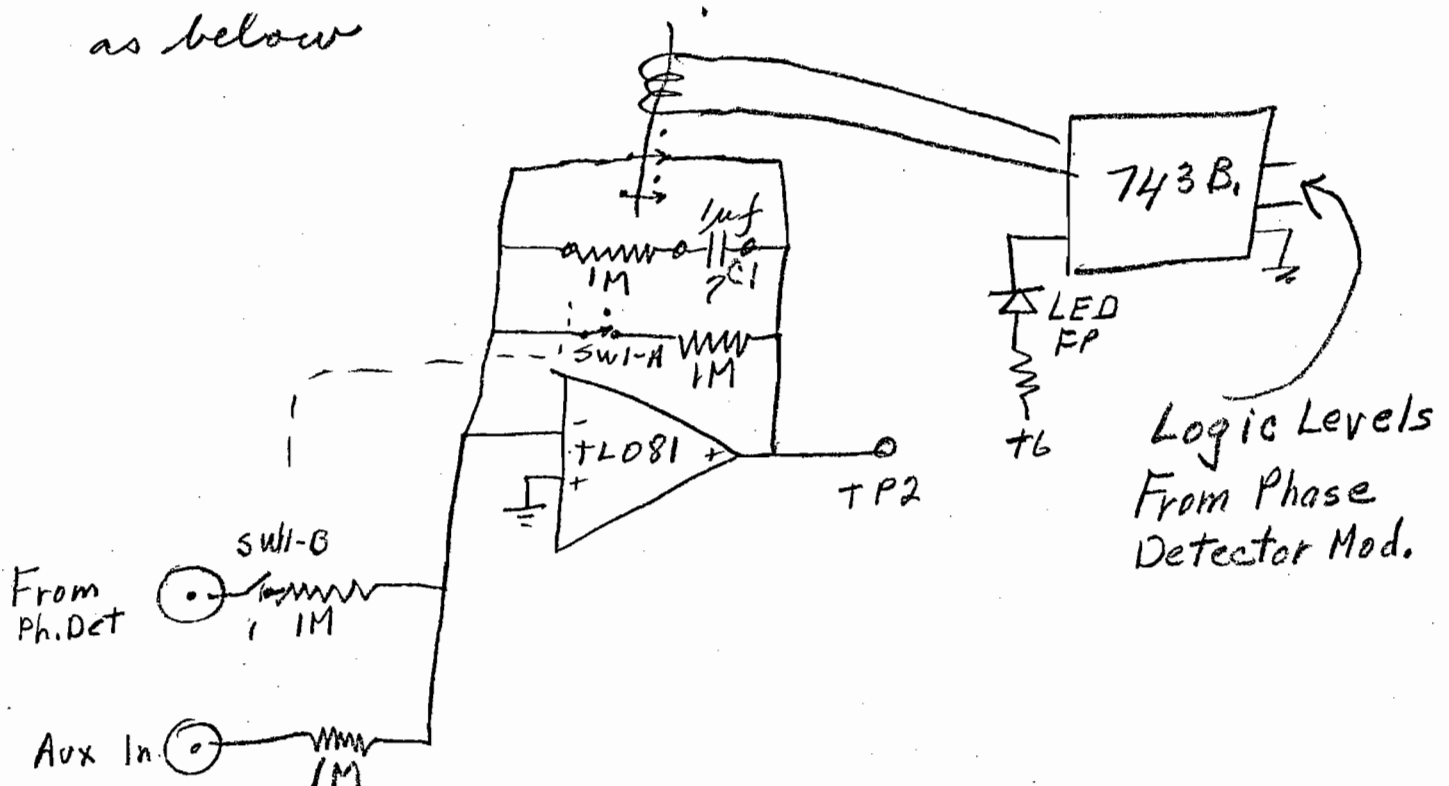 as below
743B.
1µf
1M
C1
LED
FP
SW1-A
1M
+6
-
TL081
+
+
TP2
Logic Levels
From Phase
Detector Mod.
SW1-B
From
Ph.Det
1M
Aux In.
1M